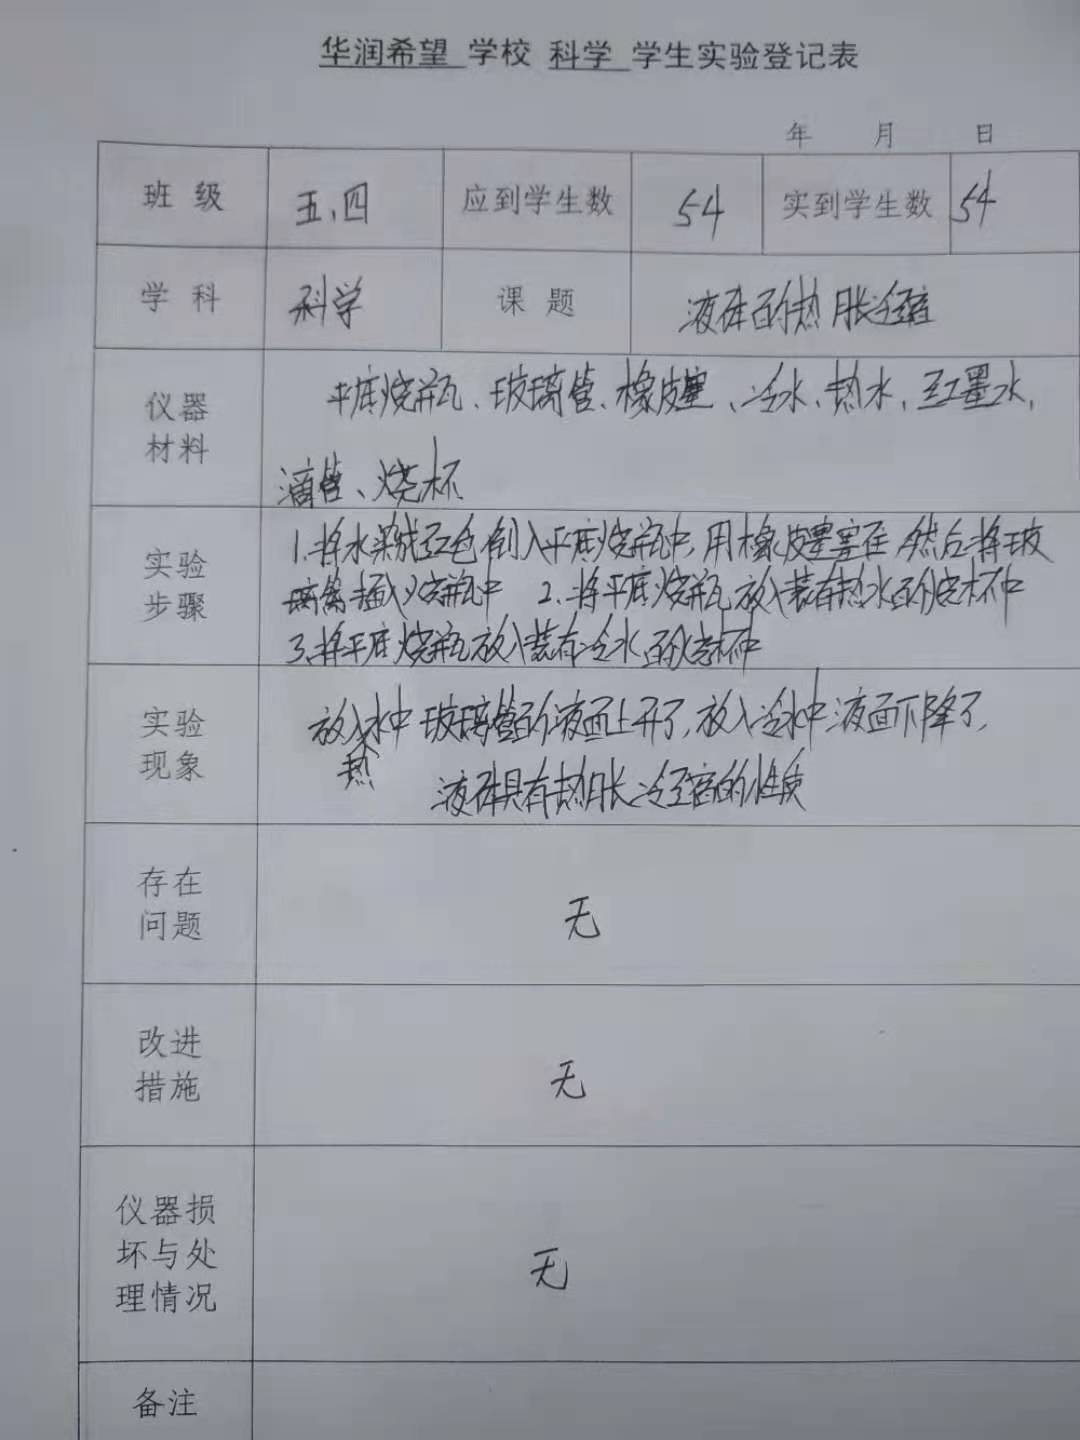 华润希望 学校 科学 学生实验登记表
年 月 日
班 级 五.四 应到学生数 54 实到学生数 54
学 科 科学 课 题 液体的热胀冷缩
仪器
材料
平底烧瓶、玻璃管、橡皮塞、冷水、热水、红墨水,
滴管、烧杯
实验
步骤
1.将水染成红色倒入平底烧瓶中,用橡皮塞塞住,然后将玻
璃管插入烧瓶中 2.将平底烧瓶放入装有热水的烧杯中
3.将平底烧瓶放入装有冷水的烧杯中
实验
现象
放入热水中玻璃管的液面上升了,放入冷水中液面下降了,
液体具有热胀冷缩的性质
存在
问题
无
改进
措施
无
仪器损
坏与处
理情况
无
备注